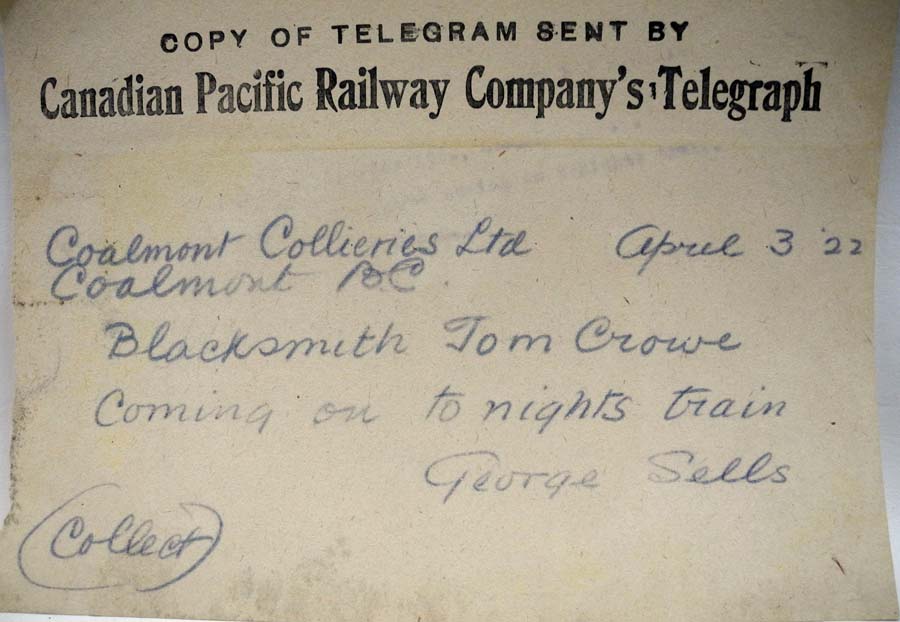 COPY OF TELEGRAM SENT BY
Canadian Pacific Railway Company's Telegraph
Coalmont Collieries Ltd April 3 '22
Coalmont BC.
Blacksmith Tom Crowe
Coming on to nights train
George Sells
Collect